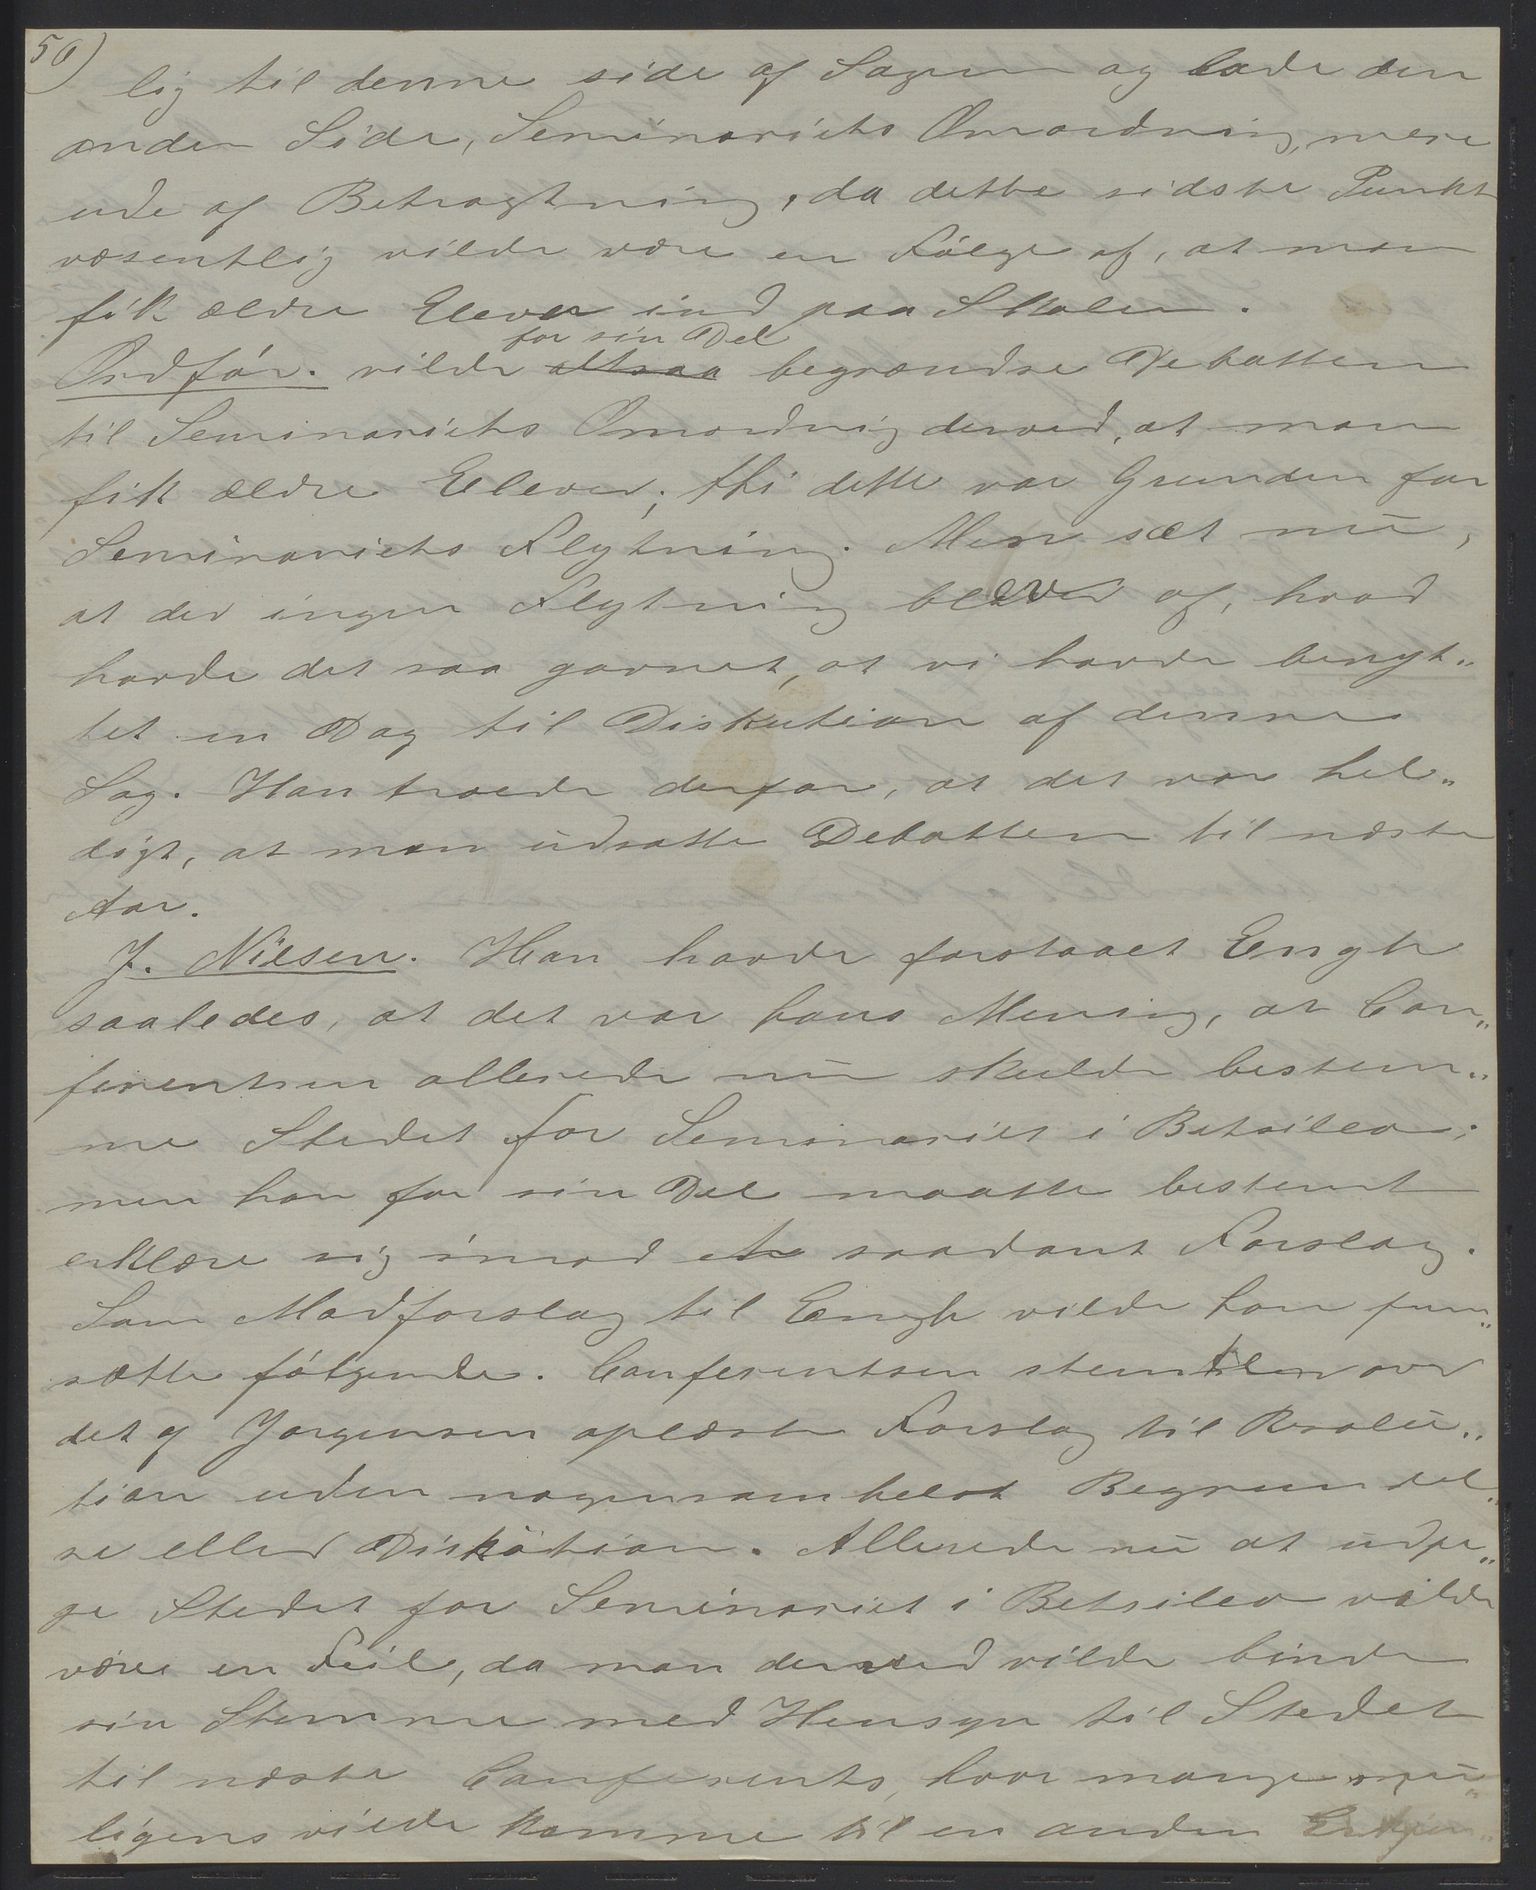 56)
lig til denne side af Sagen og lade den
anden Side, Seminariets Omordning, mere
ude af Betragtning, da dette sidste Punkt
væsentlig vilde være en Følge af, at man
fik ældre Elever ind paa Skolen.
for sin Del
Ordfør. vilde altsaa begrændse Debatten
til Seminariets Omordnig derved, at man
fik ældre Elever; thi dette var Grunden for
Seminariets Flytning. Men sæt nu,
at der ingen Flytning blever af, hvad
havde det saa gavnet, at vi havde benyt„
tet en Dag til Diskution af denne
Sag. Han troede derfor, at det var hel„
digt, at man udsatte Debatten til næste
Aar.
J. Nilsen. Han havde forstaaet Engh
saaledes, at det var hans Mening, at Con„
ferentsen allerede nu skulde bestem„
me Stedet for Seminariet i Betsileo;
men han for sin Del maatte bestemt
erklære sig imod et saadant Forslag.
Som Modforslag til Engh vilde han frem„
sætte følgende. Conferentsen stemmer over
det af Jørgensen oplæste Forslag til Resolu„
tion uden nogensomhelst Begrundel„
se eller Diskution. Allerede nu at udpe„
ge Stedet for Seminariet i Betsileo vilde
være en Feil, da man derved vilde binde
sin Stemme med Hensyn til Stedet
til næste Conferents, hvor mange mu„
ligens vilde komme til en anden Erkjen„